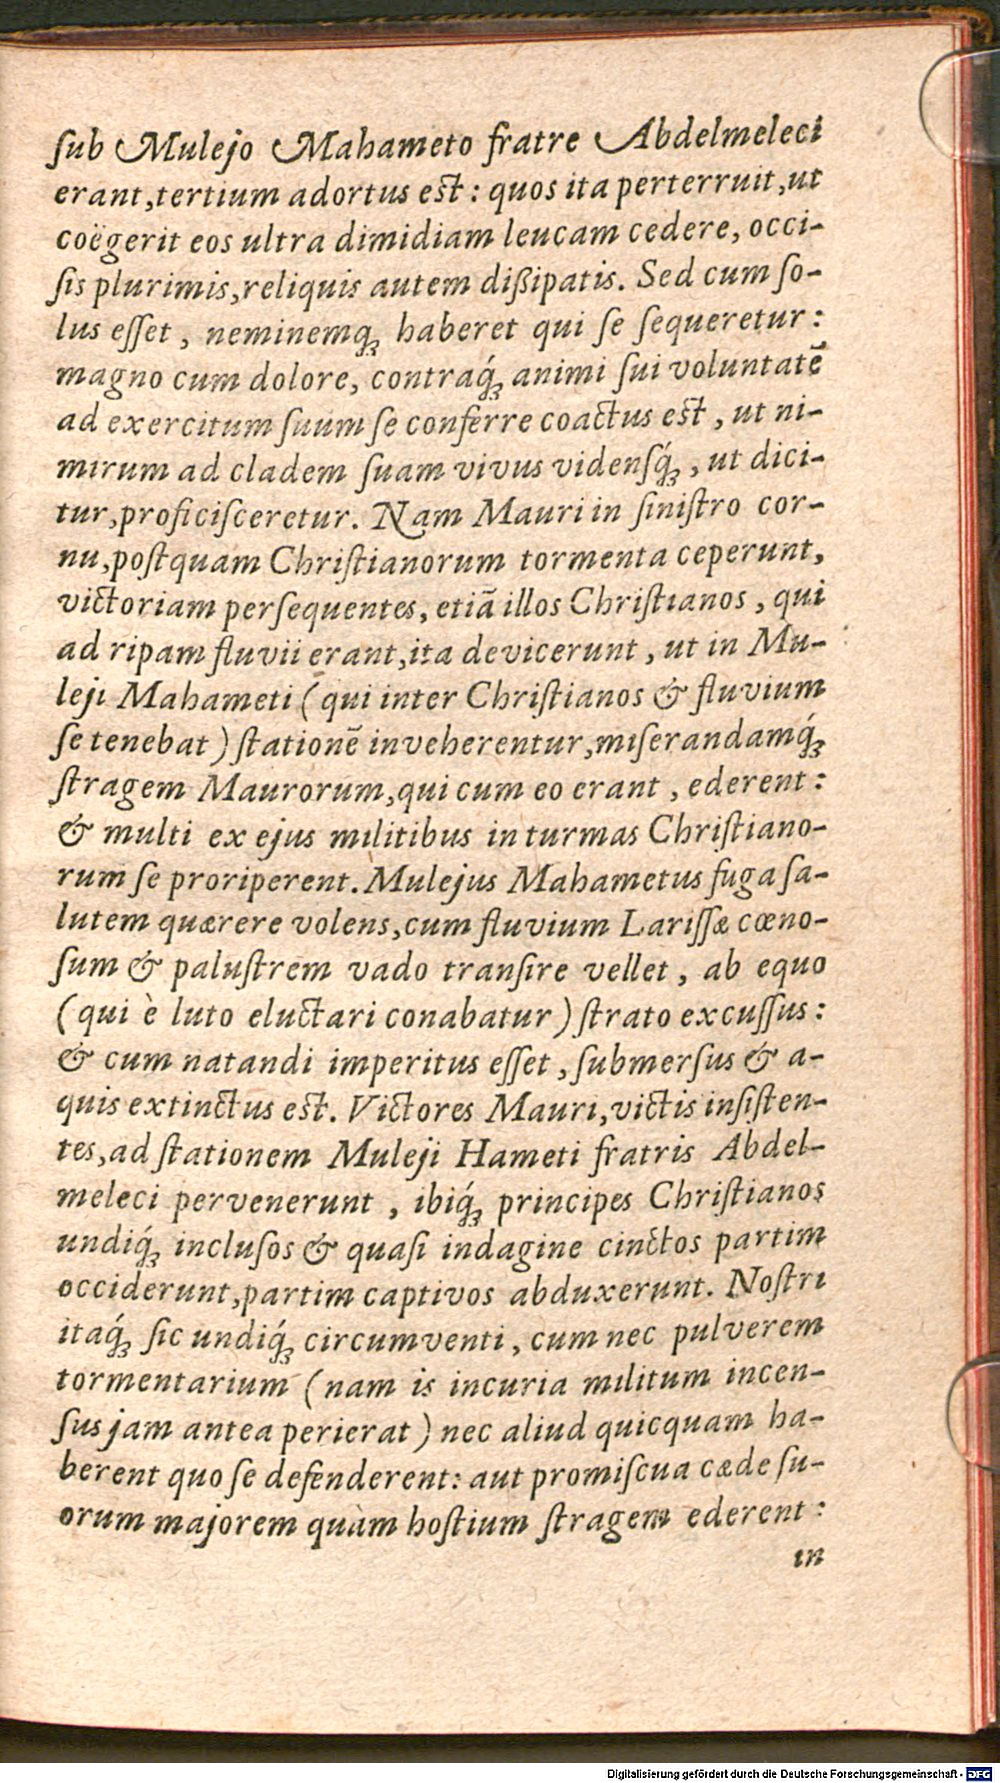 ſub Mulejo Mahameto fratre Abdelmeleci
erant, tertium adortus est: quos ita perterruit, ut
coëgerit eos ultra dimidiam leucam cedere, occi-
ſis plurimis, reliquis autem dißipatis. Sed cum ſo-
lus eſſet, neminemq́ꝫ haberet qui ſe ſequeretur:
magno cum dolore, contraq́ꝫ animi ſui voluntatē
ad exercitum ſuum ſe conferre coactus est, ut ni-
mirum ad cladem ſuam vivus vidensq́ꝫ, ut dici-
tur, proficiſceretur. Nam Mauri in ſiniſtro cor-
nu, poſtquam Chriſtianorum tormenta ceperunt,
victoriam perſequentes, etiā illos Chriſtianos, qui
ad ripam fluvii erant, ita devicerunt, ut in Mu-
leji Mahameti (qui inter Chriſtianos & fluvium
ſe tenebat) ſtationē inveherentur, miſerandamq́ꝫ
ſtragem Maurorum, qui cum eo erant, ederent:
& multi ex ejus militibus in turmas Chriſtiano-
rum ſe proriperent. Mulejus Mahametus fuga ſa-
lutem quærere volens, cum fluvium Lariſſæ cœno-
ſum & paluſtrem vado tranſire vellet, ab equo
(qui è luto eluctari conabatur) ſtrato excuſſus:
& cum natandi imperitus eſſet, ſubmerſus & a-
quis extinctus est. Victores Mauri, victis inſiſten-
tes, ad ſtationem Muleji Hameti fratris Abdel-
meleci pervenerunt, ibiq́ꝫ principes Chriſtianos
undiq́ꝫ incluſos & quaſi indagine cinctos partim
occiderunt, partim captivos abduxerunt. Noſtri
itaq́ꝫ ſic undiq́ꝫ circumventi, cum nec pulverem
tormentarium (nam is incuria militum incen-
ſus jam antea perierat) nec aliud quicquam ha-
berent quo ſe defenderent: aut promiſcua cæde ſu-
orum majorem quàm hoſtium ſtragem ederent:
in
Digitalisierung gefördert durch die Deutsche Forschungsgemeinschaft - DFG